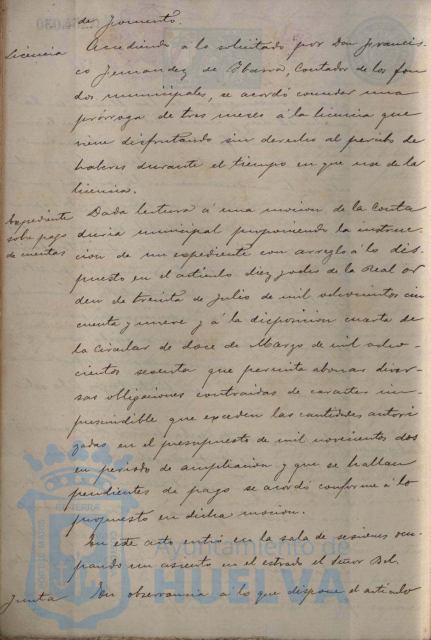 de Fomento.
Licencia Accediendo á lo solicitado por Don Francis-
co Fernandez de Ybarra, Contador de los fon
dos municipales, se acordó conceder una
prórroga de tres meses á la licencia que
viene disfrutando sin derecho al percibo de
haberes durante el tiempo en que use de la
licencia.
Expediente sobre pago de cuentas
Dada lectura á una mocion de la Conta
duria municipal proponiendo la instruc-
cion de un expediente con arreglo á lo dis-
puesto en el articulo diez y de la Real or
den de treinta de Julio de mil ochocientos cin
cuenta y nueve y á la disposicion cuarta de
la Circular de doce de Marzo de mil ocho-
cientos sesenta que permita abonar diver-
sas obligaciones contraidas de caracter im-
prescindible que exceden las cantidades autori
zadas en el presupuesto de mil novecientos dos
en periodo de ampliacion y que se hallan
pendientes de pago se acordó conforme á lo
propuesto en dicha mocion.
En este acto entró en la sala de sesiones ocu-
pando un asiento en el estrado el Señor Bel.
Junta En observancia á lo que dispone el articulo
Ayuntamiento de
HUELVA